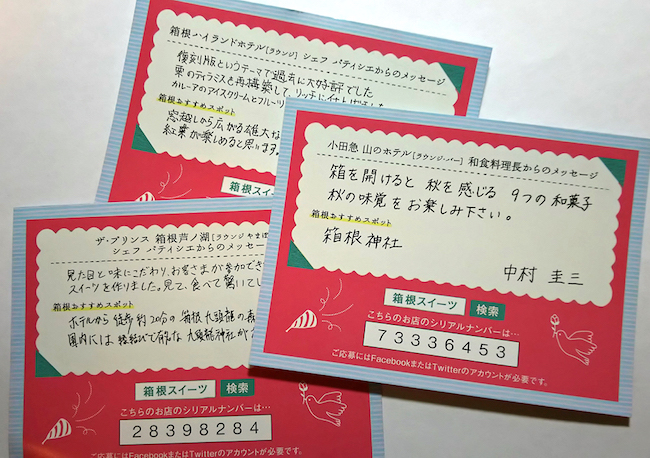 箱根ハイランドホテル[ラウンジ] シェフ パティシエからのメッセージ
復刻版というテーマで過去に大好評でした
栗のティラミスを再構築して、リッチに仕上げました
カルーアのアイスクリームとフルーリ
箱根おすすめスポット
窓越しから広がる雄大な
紅葉が楽しめると思います。
箱根スイーツ
小田急 山のホテル[ラウンジ・バー] 和食料理長からのメッセージ
箱を開けると 秋を感じる 9つの和菓子
秋の味覚をお楽しみ下さい。
箱根おすすめスポット
箱根神社
中村 圭三
箱根スイーツ 検索
こちらのお店のシリアルナンバーは…
73336453
ご応募にはFacebookまたはTwitterのアカウントが必要です。
ザ・プリンス 箱根芦ノ湖[ラウンジ やまぼ
シェフ パティシエからのメッセー
見た目と味にこだわり、お客さまが
スイーツを作りました。見て、食べて驚いてし
箱根おすすめスポット
ホテルから 徒歩約20分の 箱根 九頭龍の森
園内には 縁結びで有名な 九頭龍神社が
箱根スイーツ 検索
こちらのお店のシリアルナンバーは…
28398284
ご応募にはFacebookまたはTwitterのアカウントが必要です。